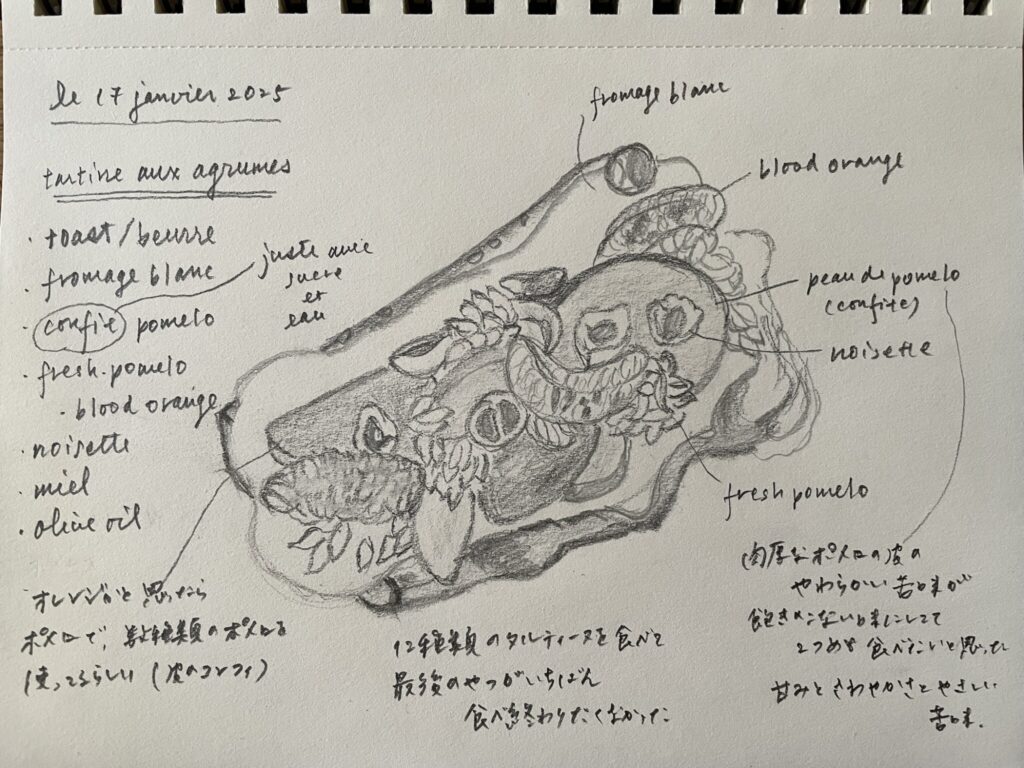 le 17 janvier 2025
tartine aux agrumes
· toast/beurre
· fromage blanc
· confit pomelo
juste avec
sucre
et
eau
· fresh pomelo
· blood orange
· noisette
· miel
· olive oil
fromage blanc
blood orange
peau de pomelo
(confite)
noisette
fresh pomelo
オレンジかと思ったら
ポメロで、数種類のポメロを
使ってるらしい (皮のコンフィ)
12種類のタルティーヌを食べて
最後のやつがいちばん
食べ終わりたくなかった
肉厚なポメロの皮の
やわらかい苦味が
飽きのこない味にしてて
2つめも食べたいと思った
甘みとさわやかさとやさしい
苦味.